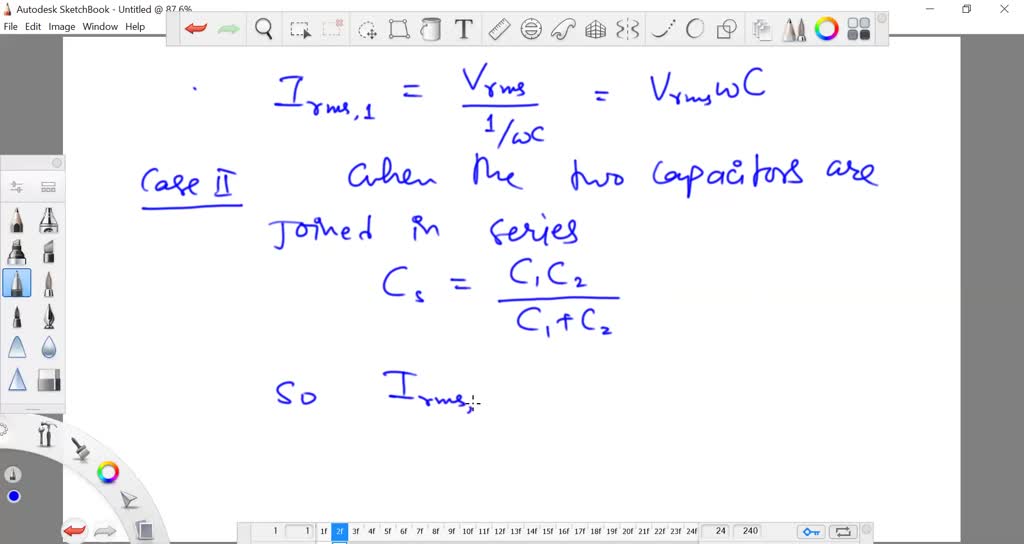 Autodesk SketchBook - Untitled @ 87.6%
File Edit Image Window Help
I rms,1 = Vrms / 1/ωC = Vrms ωC
Case II When the two capacitors are
Joined in series
Cs = C1C2 / C1+C2
So Irms,
1 1 1f 2f 3f 4f 5f 6f 7f 8f 9f 10f 11f 12f 13f 14f 15f 16f 17f 18f 19f 20f 21f 22f 23f 24f 24 240